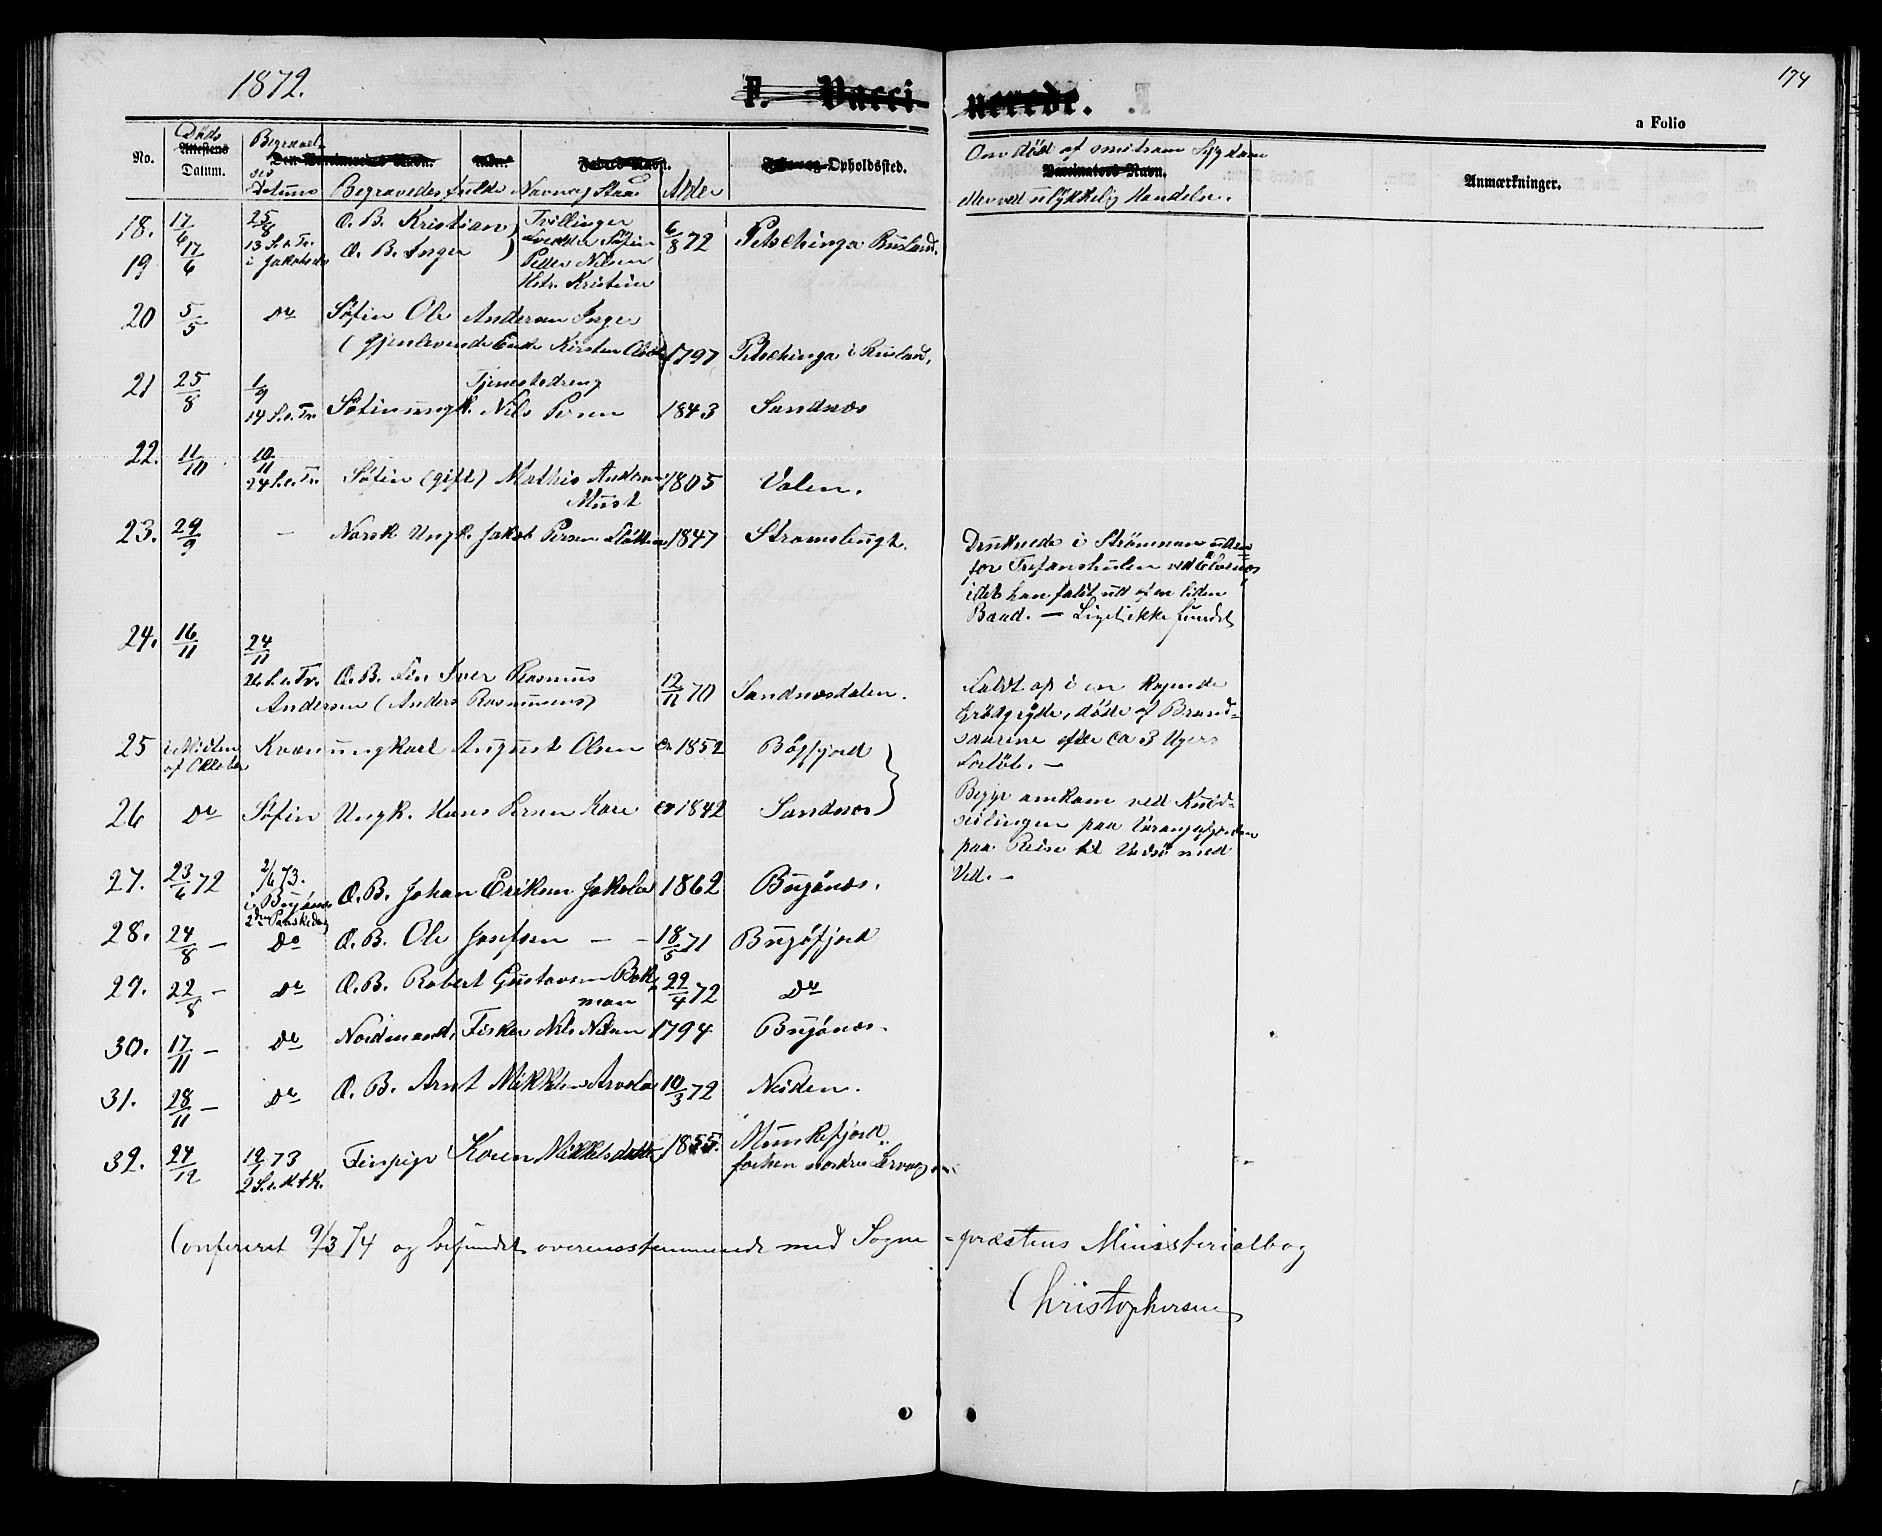 1872.
F. Vaccinerede.
174
a Folio
No.
Døds
Attestens
Datum.
Begravel-
ses
Datum
Den Vaccineredes Navn.
Begravedes fulde Navn og Stand
Alder
Opholdssted.
Om død af smitsom Sygdom
Vaccinators Navn.
eller ved ulykkelig Hændelse.
Anmærkninger.
18. 17/6 25/8 Æ. B. Kristian Tvillinger 6/8 72 Petschinga Rusland.
13 S. e. Tr.
19 17/6 i Jakobselv Æ. B. Inger
Peder Nilsen
Hstr. Kristine
20 5/5 Do Søfin Ole Andersen Inger
(Gjenlevende Enke Kirsten Olsd. 1797 Petschinga i Rusland,
21 25/8 1/9 Tjenestedreng
14 S. e. Tr. Søfin ungk. Nils Persen 1843 Sandnæs
22. 11/10 10/11
24 S. e. Tr. Søfin (gift) Mathis Andersen 1805 Valen.
Must
23. 29/9 – Norsk Ungk. Jakob Persen 1847 Strømsbugt.
Druknede i Strømmen uden
for Trifanshulen ved Elvenæs
idet han faldt ud af en liden
Baad. – Liget ikke fundet
24. 16/11 24/11
26 S. e. Tr. Æ. B. Fin Iver Rasmus
Andersen (Anders Rasmussens) 12/11 70 Sandnæsdalen.
Faldt op i en kogende
Grødgryde, døde af Brand-
saarene efter ca 3 Ugers
Forløb. –
25 i Midten
af Oktober Kvæn ungkarl August Olsen ca 1852 Bøgfjord
26 Do Søfin Ungk. Hans Persen Kare ca 1842 Sandnæs
Begge omkom ved Kuld-
seilingen paa Varangefjorden
paa Reise til Vadsø med
Ved. –
27. 23/6 72 2/6 73.
i Bugønæs
2den Paaskedag Æ. B. Johan Eriksen Jakola 1862 Bugønæs.
28. 24/8 – Do Æ. B. Ole Josefsen – – 18/5 71 Bugøfjord
29. 22/8 – Do Æ. B. Robert Gustavsen Bek-
man 22/4 72 Do
30. 17/11 – Do Nordmand, Fisker Nils Nilsen 1794 Bugønæs.
31. 28/11 – Do Æ. B. Arnt Mikkelsen Arvola 10/3 72 Neiden.
32. 24/12 12/1 73
2 S. e. H. 3 K. Finpige Karen Mikkelsdatter 1855. Munkefjord
Confereret 9/3 74 og befundet overensstemmende med Sogne-præstens Ministerialbog
Christophersen